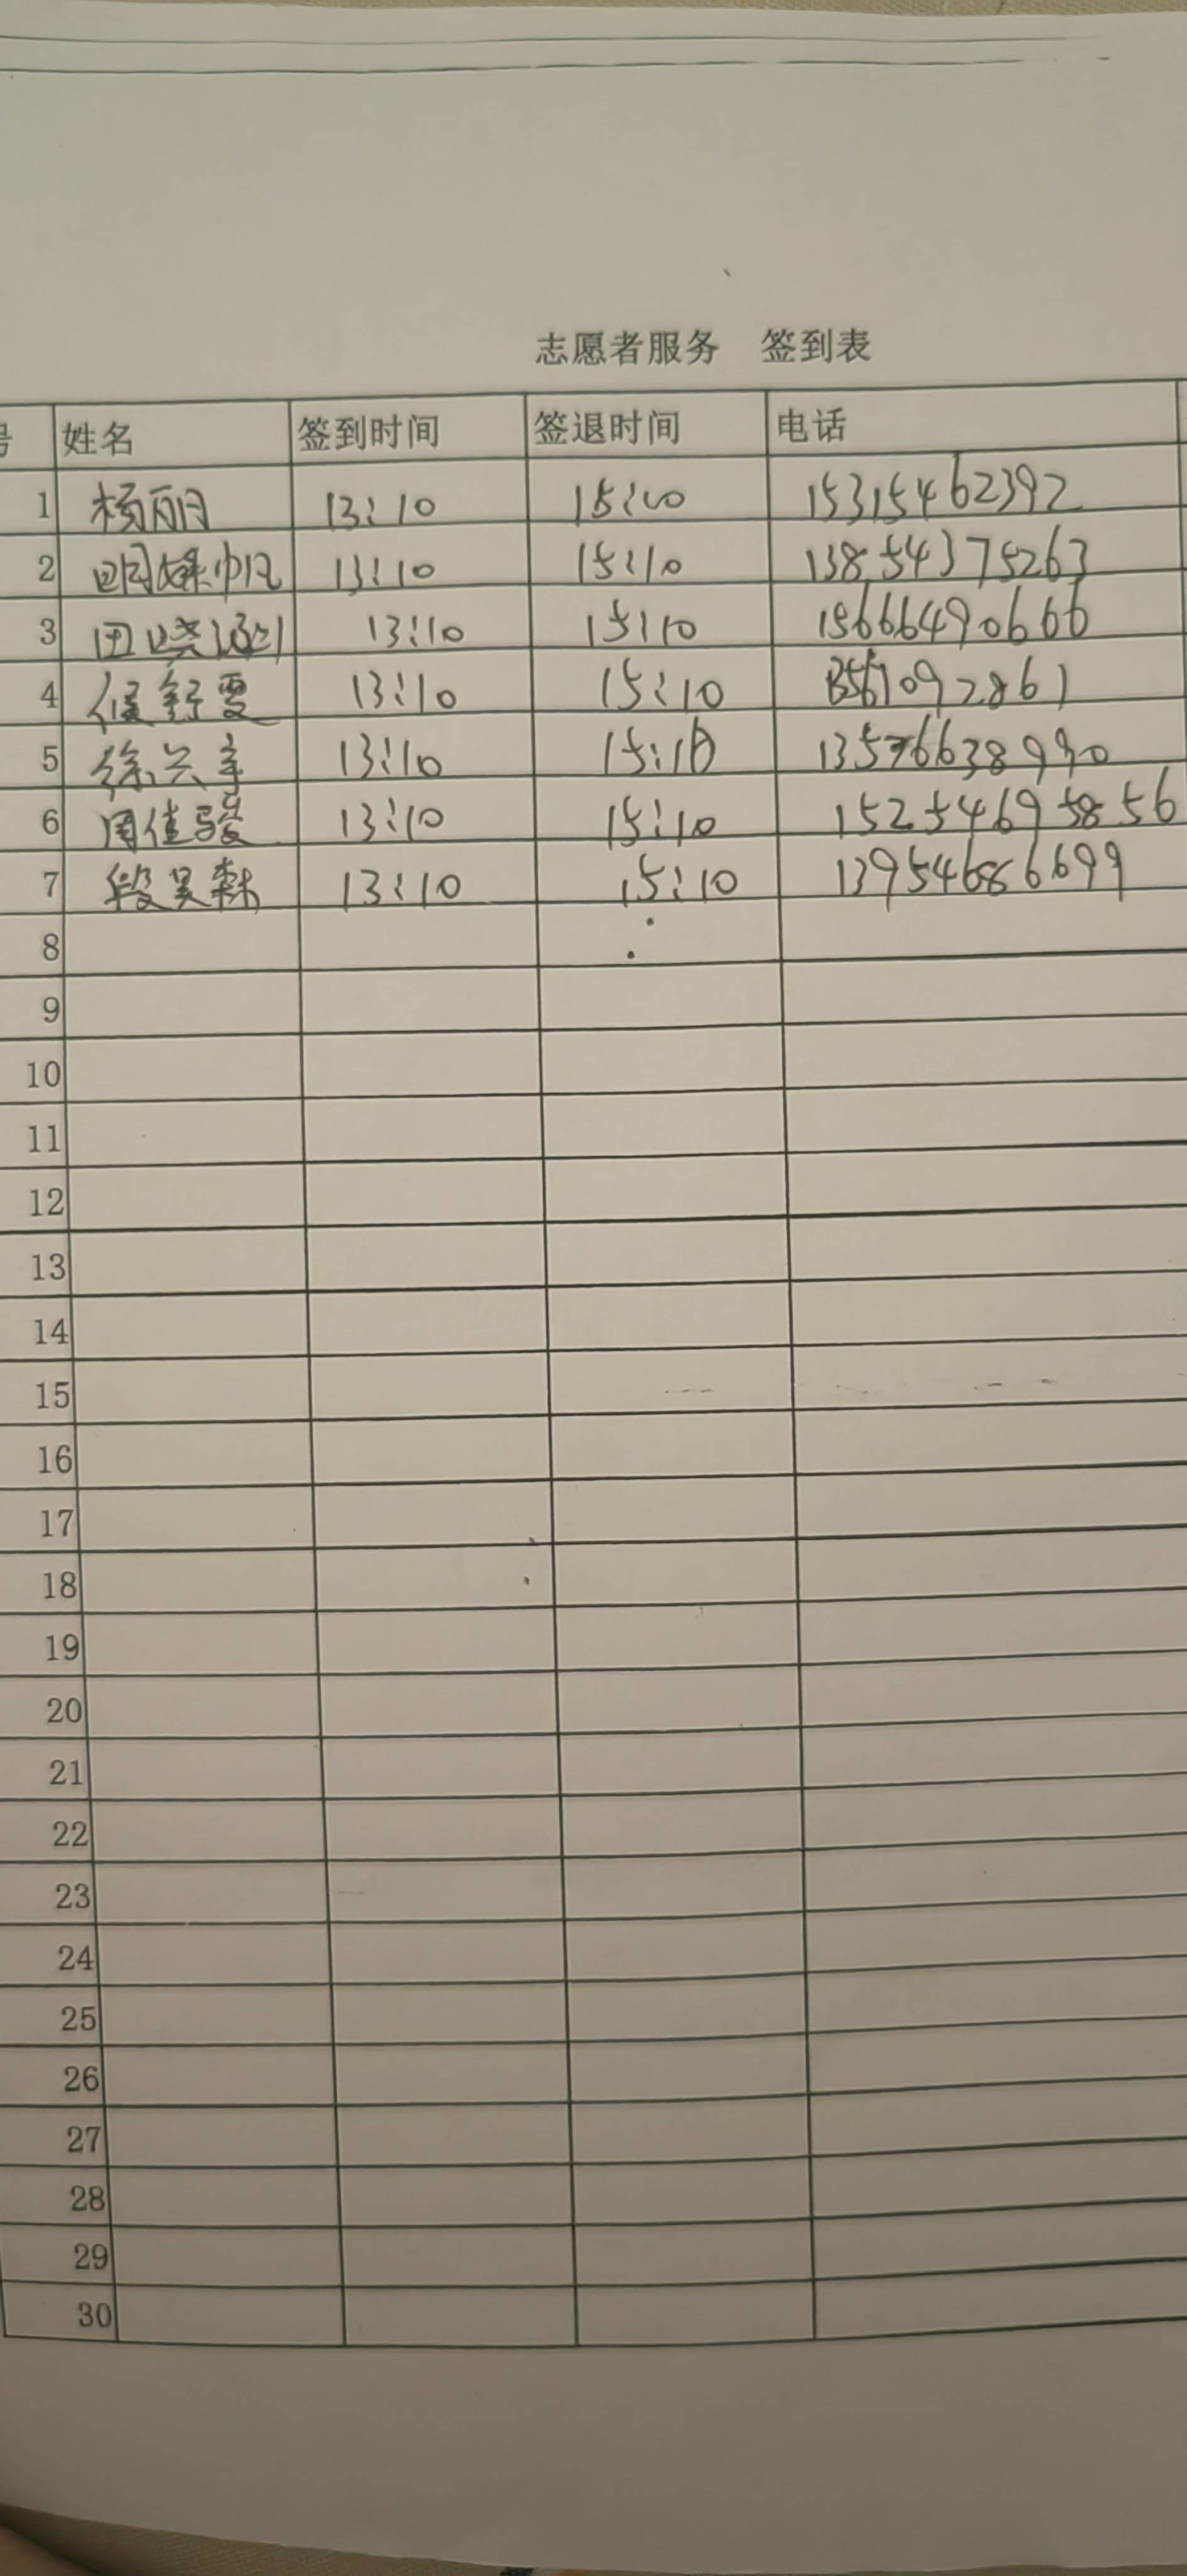 志愿者服务 签到表
号 姓名 签到时间 签退时间 电话
1 杨丽 13:10 15:10 15315462392
2 13:10 15:10 13854375263
3 田晓涵 13:10 15:10 15666490666
4 侯舒雯 13:10 15:10 13561092861
5 徐兴宇 13:10 15:10
6 周佳骏 13:10 15:10 15254695856
7 段昊森 13:10 15:10 13954686699
8
9
10
11
12
13
14
15
16
17
18
19
20
21
22
23
24
25
26
27
28
29
30